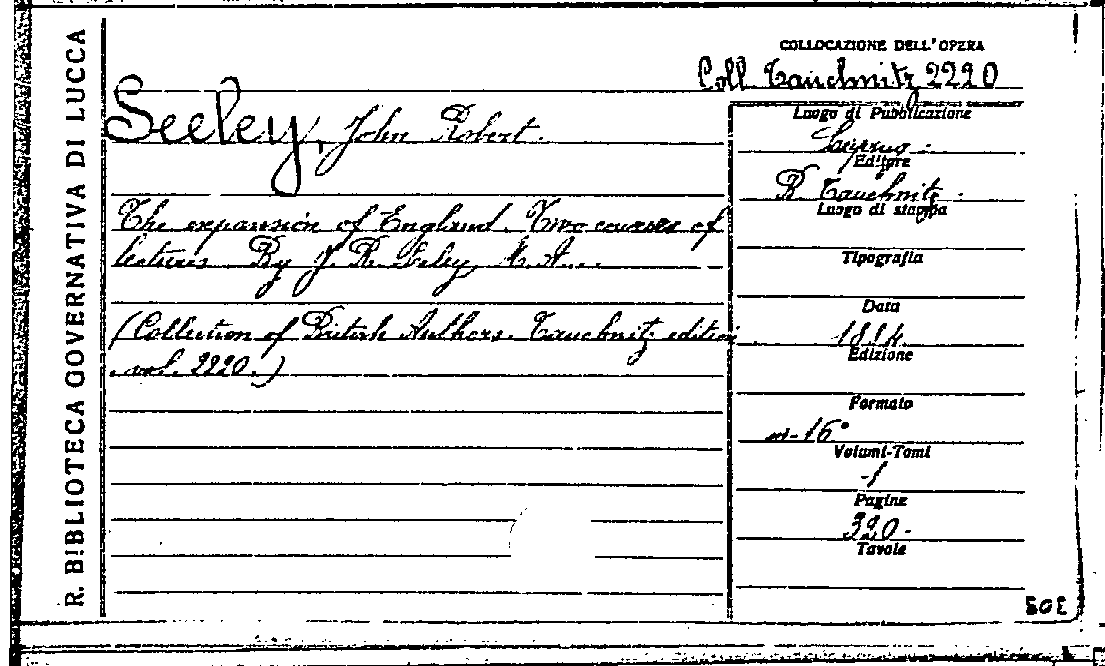 R. BIBLIOTECA GOVERNATIVA DI LUCCA
COLLOCAZIONE DELL'OPERA
Coll. Tauchnitz 2220
Seeley, John Robert.
The expansion of England. Two courses of
lectures By J. R. Seeley, M. A..
(Collection of British Authors. Tauchnitz edition.
vol. 2220.)
Luogo di Pubblicazione
Editore
B. Tauchnitz.
Luogo di stampa
Tipografia
Data
1884
Edizione
Formato
in-16°
Volumi-Tomi
1
Pagine
320.
Tavole